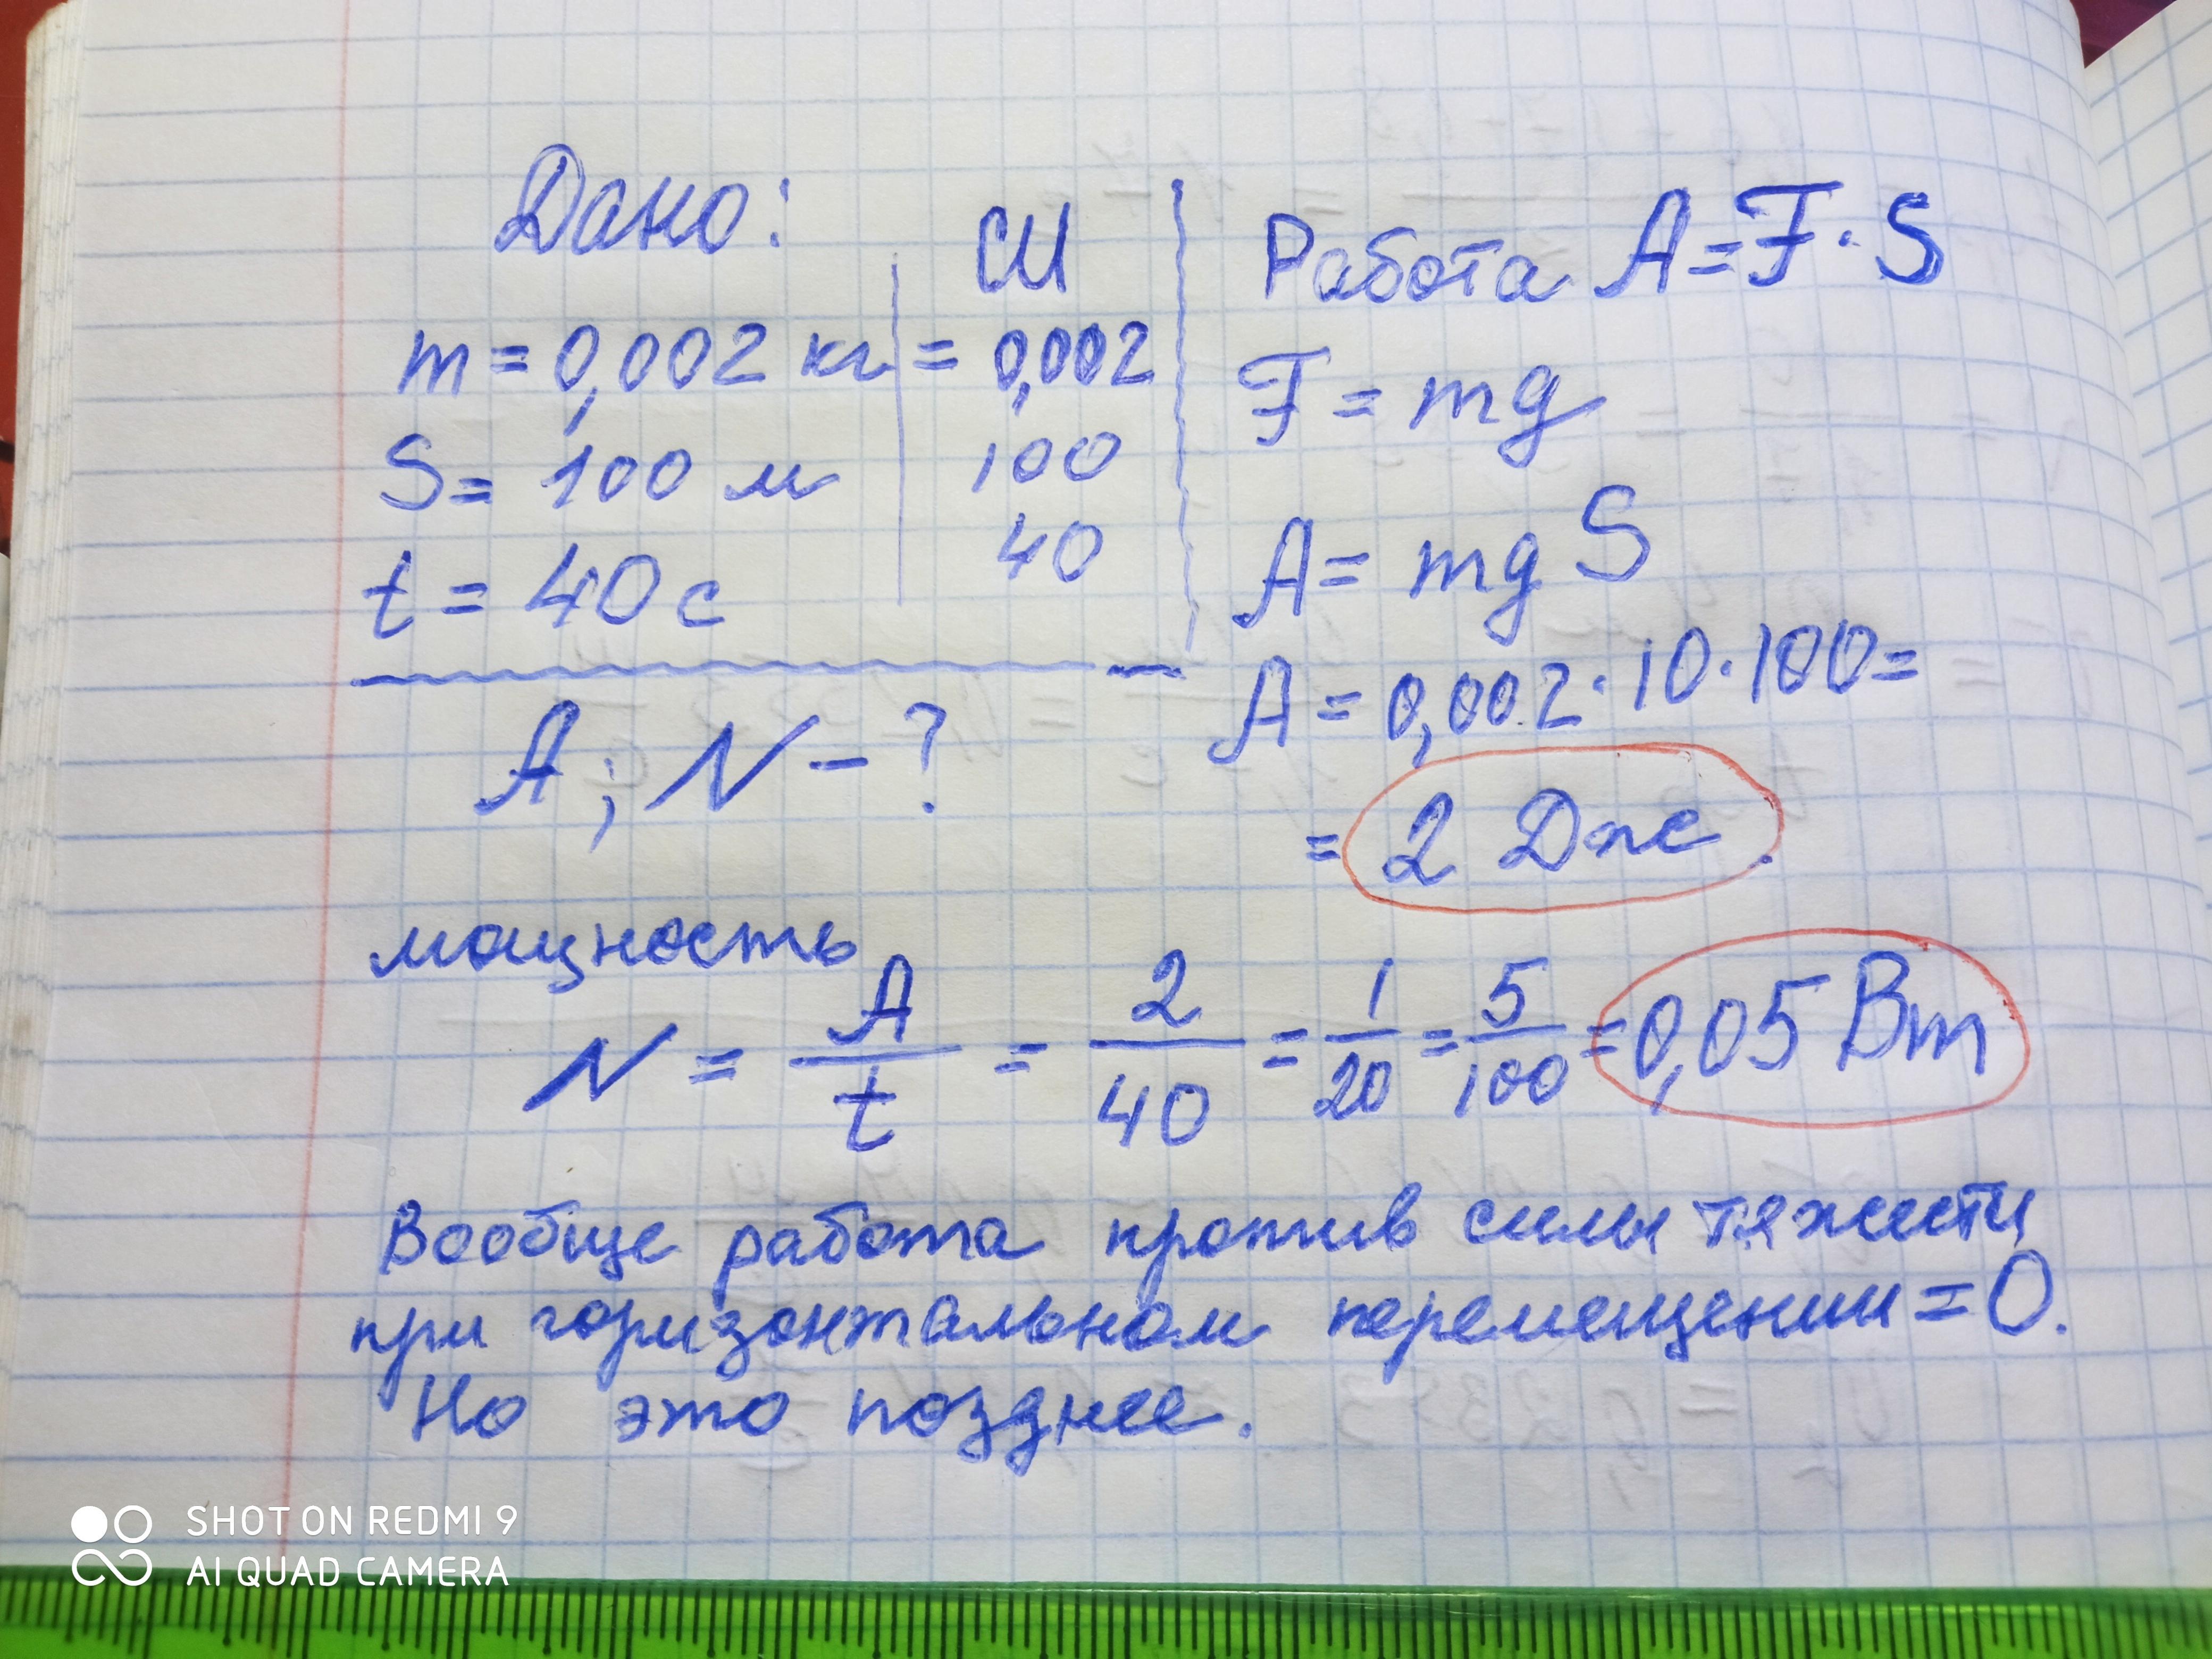 Дано:
СИ
m = 0,002 кг = 0,002
S = 100 м 100
t = 40 с 40
A; N - ?
Работа A = F · S
F = mg
A = mg S
A = 0,002 · 10 · 100 =
= 2 Дж.
мощность
N = A/t = 2/40 = 1/20 = 5/100 = 0,05 Вт
Вообще работа против силы тяжести
при горизонтальном перемещении = 0.
Но это позднее.
SHOT ON REDMI 9
AI QUAD CAMERA